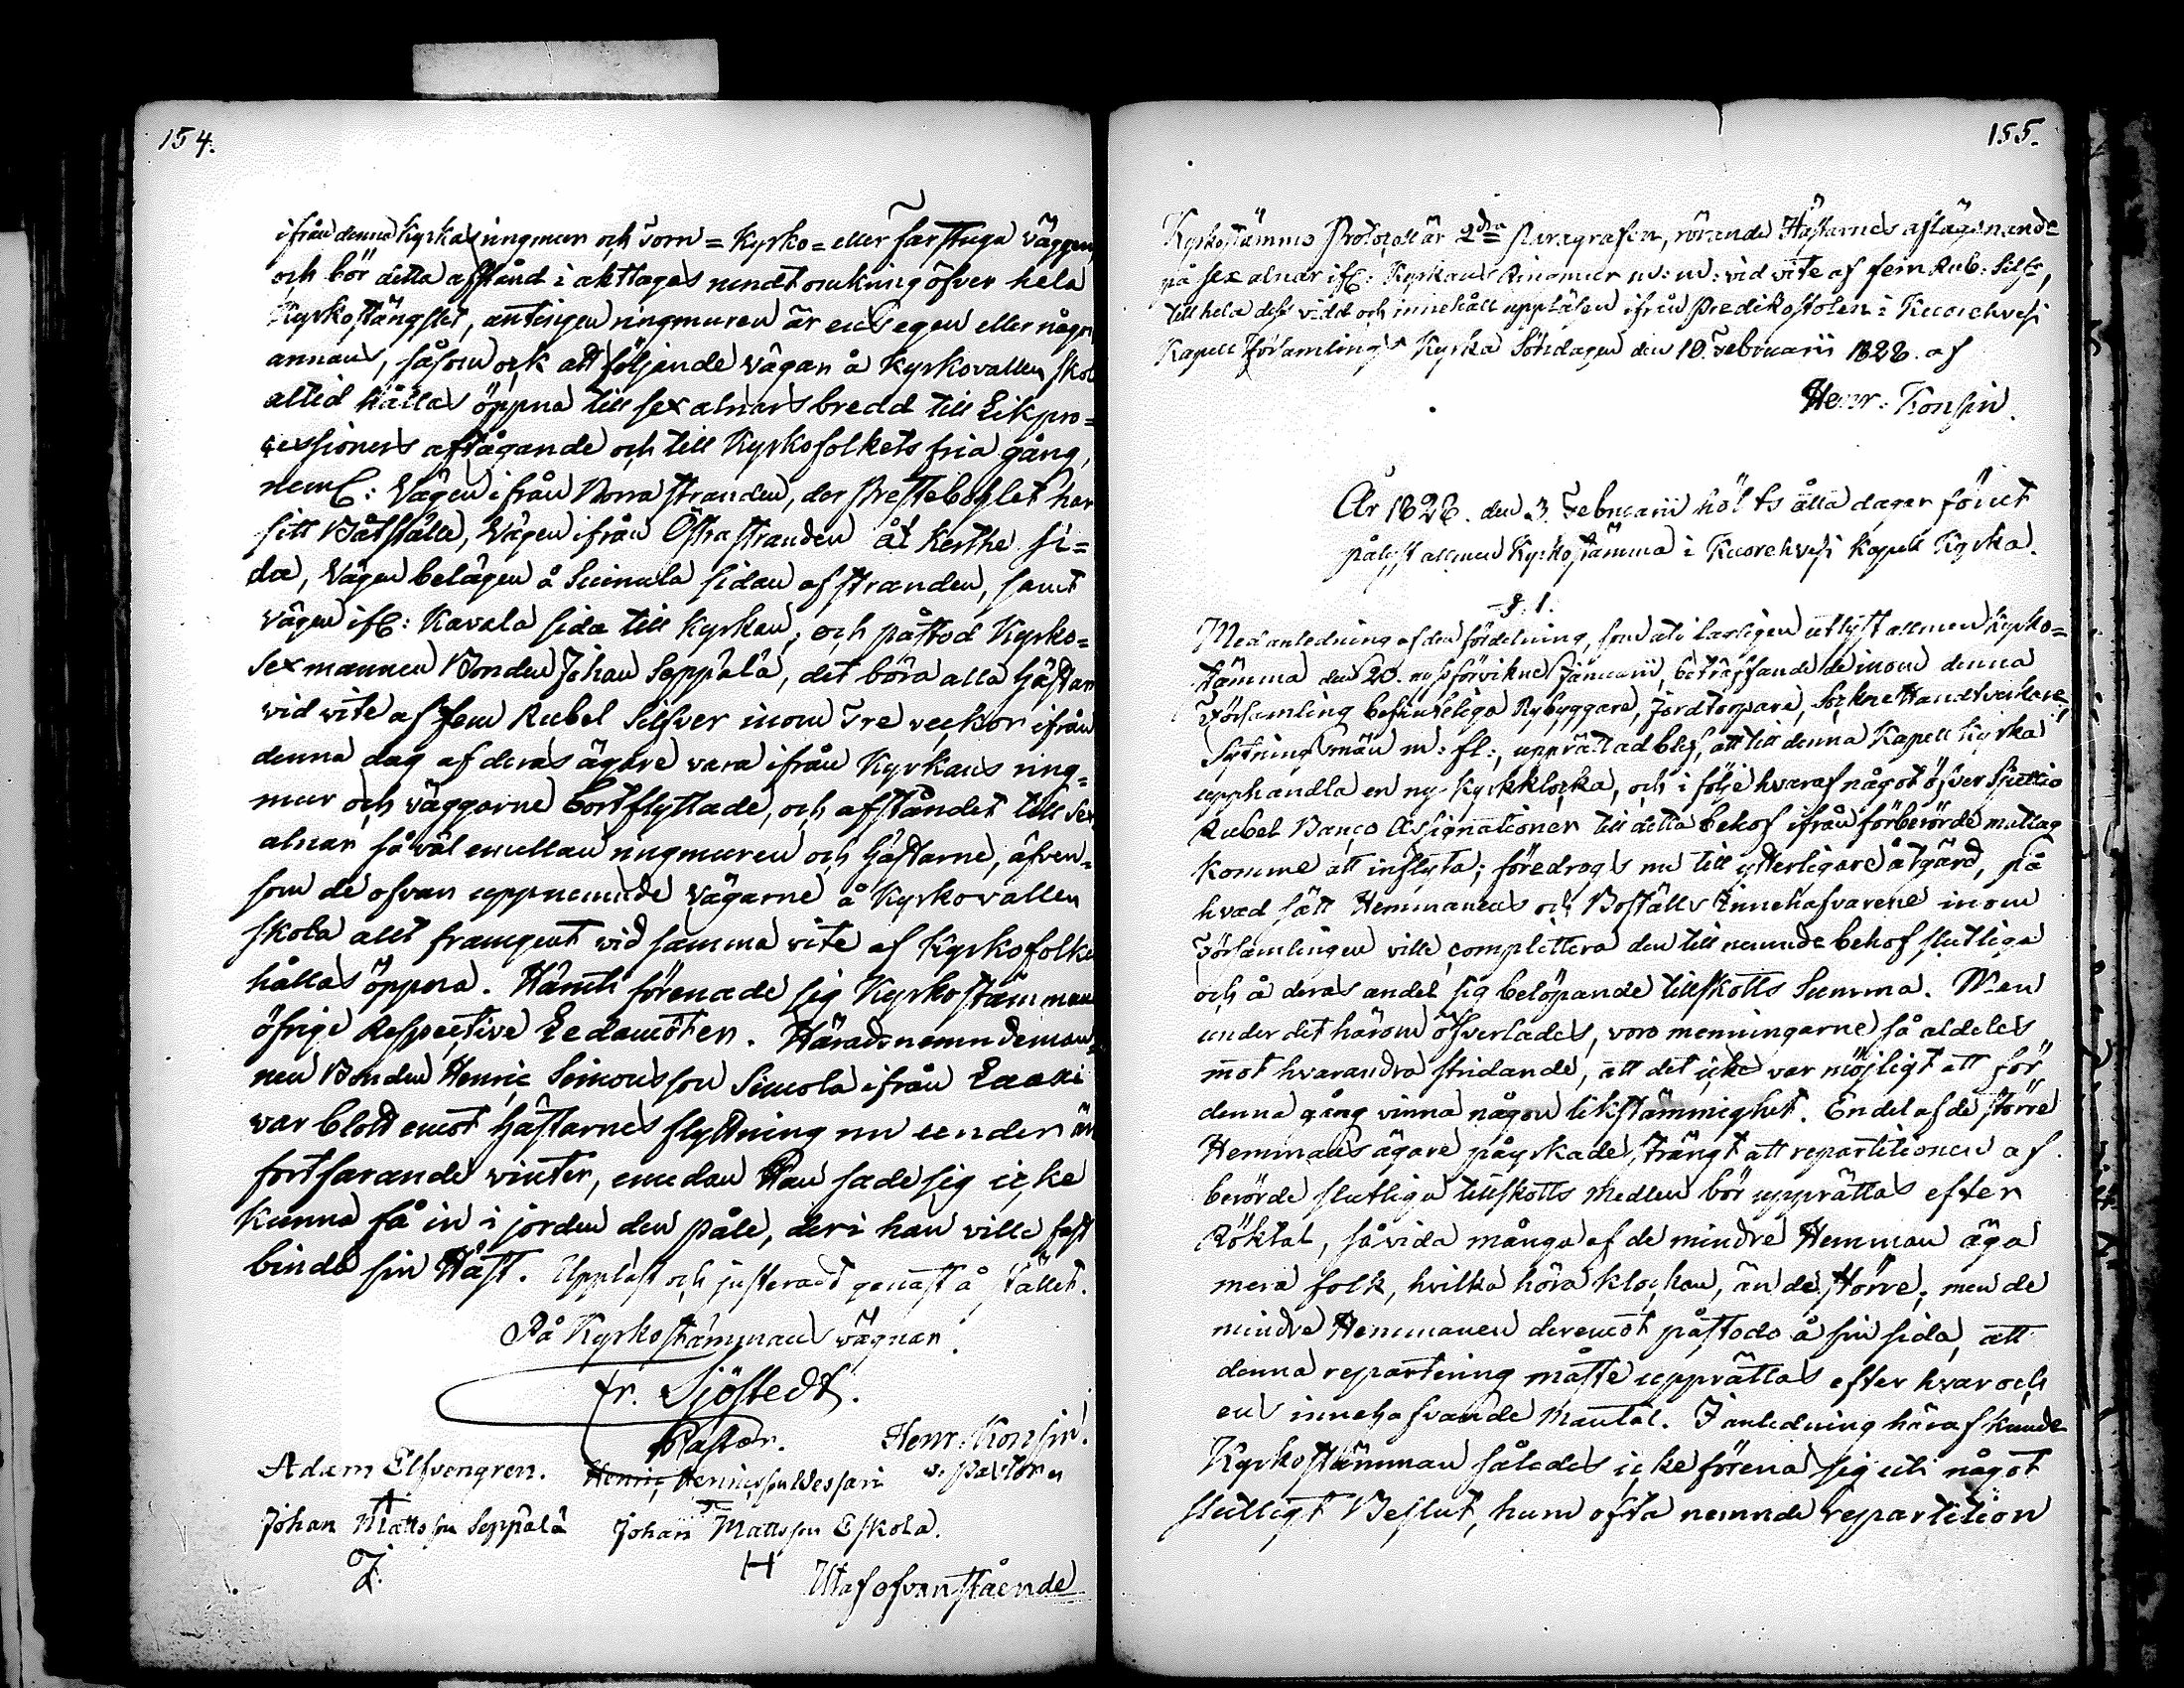 154.
ifrån denna Kyrkas ringmur och Torn= Kyrko= eller Farstuga väggen,
och bör detta afstånd i akttagas rundt omkring öfver hela
Kyrkostängslet, antingen ringmuren är ens egen eller någon
annans, såsom ock att följande vägar å Kyrkovallen skola
altid hållas öppna till sex alnars bredd till Likpro=
cessioners aftågande och till Kyrkofolkets fria gång,
neml: Vägen ifrån Norra stranden, der Prestebohlet har
sitt Båtställe, Vägen ifrån Östra stranden åt Kerthe si=
da, Vägen belägen å Suinula sidan af stranden, samt
vägen ifl: Kavala sida till Kyrkan, och påstod Kyrko=
sexmannen Bonden Johan Seppälä, det böra alla hästar
vid vite af fem Rubel Silfver inom Tre veckor ifrån
denna dag af deras ägare vara ifrån Kyrkans ring=
mur och väggarne bortflyttade, och afståndet till Sex
alnar så väl emellan ringmuren och hästarne, äfven=
som de ofvan uppnemnde vägarne å Kyrkovallen
skola allt framgent vid samma vite af Kyrkofolket
hållas öppna. Härmed förenade sig Kyrkostämmans
öfrige Respective Ledamöter. Häradsnemndeman=
nen Bonden Henric Simonsson Simola ifrån
var blott emot hästarnes flyttning nu under
fortfarande vinter, emedan Han sade sig icke
kunna få in i jorden den påle, deri han ville fast
binda sin Häst. Uppläst och justeradt genast å stället.
På Kyrkostämmans vägnar.
Fr. Sjöstedt.
Pastor. Henr: Konsin.
Adam Elfvengren. Henric Henricsson Wessari v. Pastor
Johan Mattsson Seppälä Johan Mattsson Eskola.
H
Utaf ofvanstående
155.
Kyrkostämmo Protocoll är 2dra Paragrafen, rörande Hästarnes aflägsnande
på sex alnar ifl: Kyrkans Ringmur m: m: vid vite af fem Rub: Silfr,
till hela dess vidd och innehåll uppläsen ifrån Predikostolen i Kuorehvesi
Kapell Församlings Kyrka Söndagen den 10. Februarii 1828. af
Henr: Konsin.
År 1828. den 3. Februarii hölts åtta dagar förut
pålyst allmen Kyrkostämma i Kuorehvesi Kapell Kyrka.
§. 1.
Med anledning af den fördelning, som uti lagligen utlyst allmen Kyrko=
stämma den 20. nyssförvikne Januarii, beträffande de inom denna
Församling befinteliga Nybyggare, Jordtorpare, Sockne Handtverkare,
Sytningsmän m: fl:, upprättad blef, att till denna Kapell Kyrka
upphandla en ny Kyrkklocka, och i följe hvaraf något öfver Sjuttio
Rubel Banco Assignationer till detta behof ifrån förberörde mattag
komme att inflyta; föredrogs nu till ytterligare åtgärd, på
hvad sätt Hemmanens och Boställs Innehafvarene inom
Församlingen ville complettera den till nemnde behof slutliga
och å deras andel sig belöpande tillskotts Summa. Men
under det härom öfverlades, voro meningarne så aldeles
mot hvarandra stridande, att det icke var möjligt att för
denna gång vinna någon likstämmighet. En del af de större
Hemmans ägare påyrkade strängt att repartitionen af
berörde slutliga tillskotts Medlen bör upprättas efter
Röktal, så vida många af de mindre Hemman äga
mera folk, hvilka höra klockan, än de större; men de
mindre Hemmanen deremot påstodo å sin sida, att
denna repartering måste upprättas efter hvar och
ens innehafvande Mantal. I anledning häraf kunde
Kyrkostämman således icke förena sig uti något
slutligt Beslut, huru ofta nemnde repartition